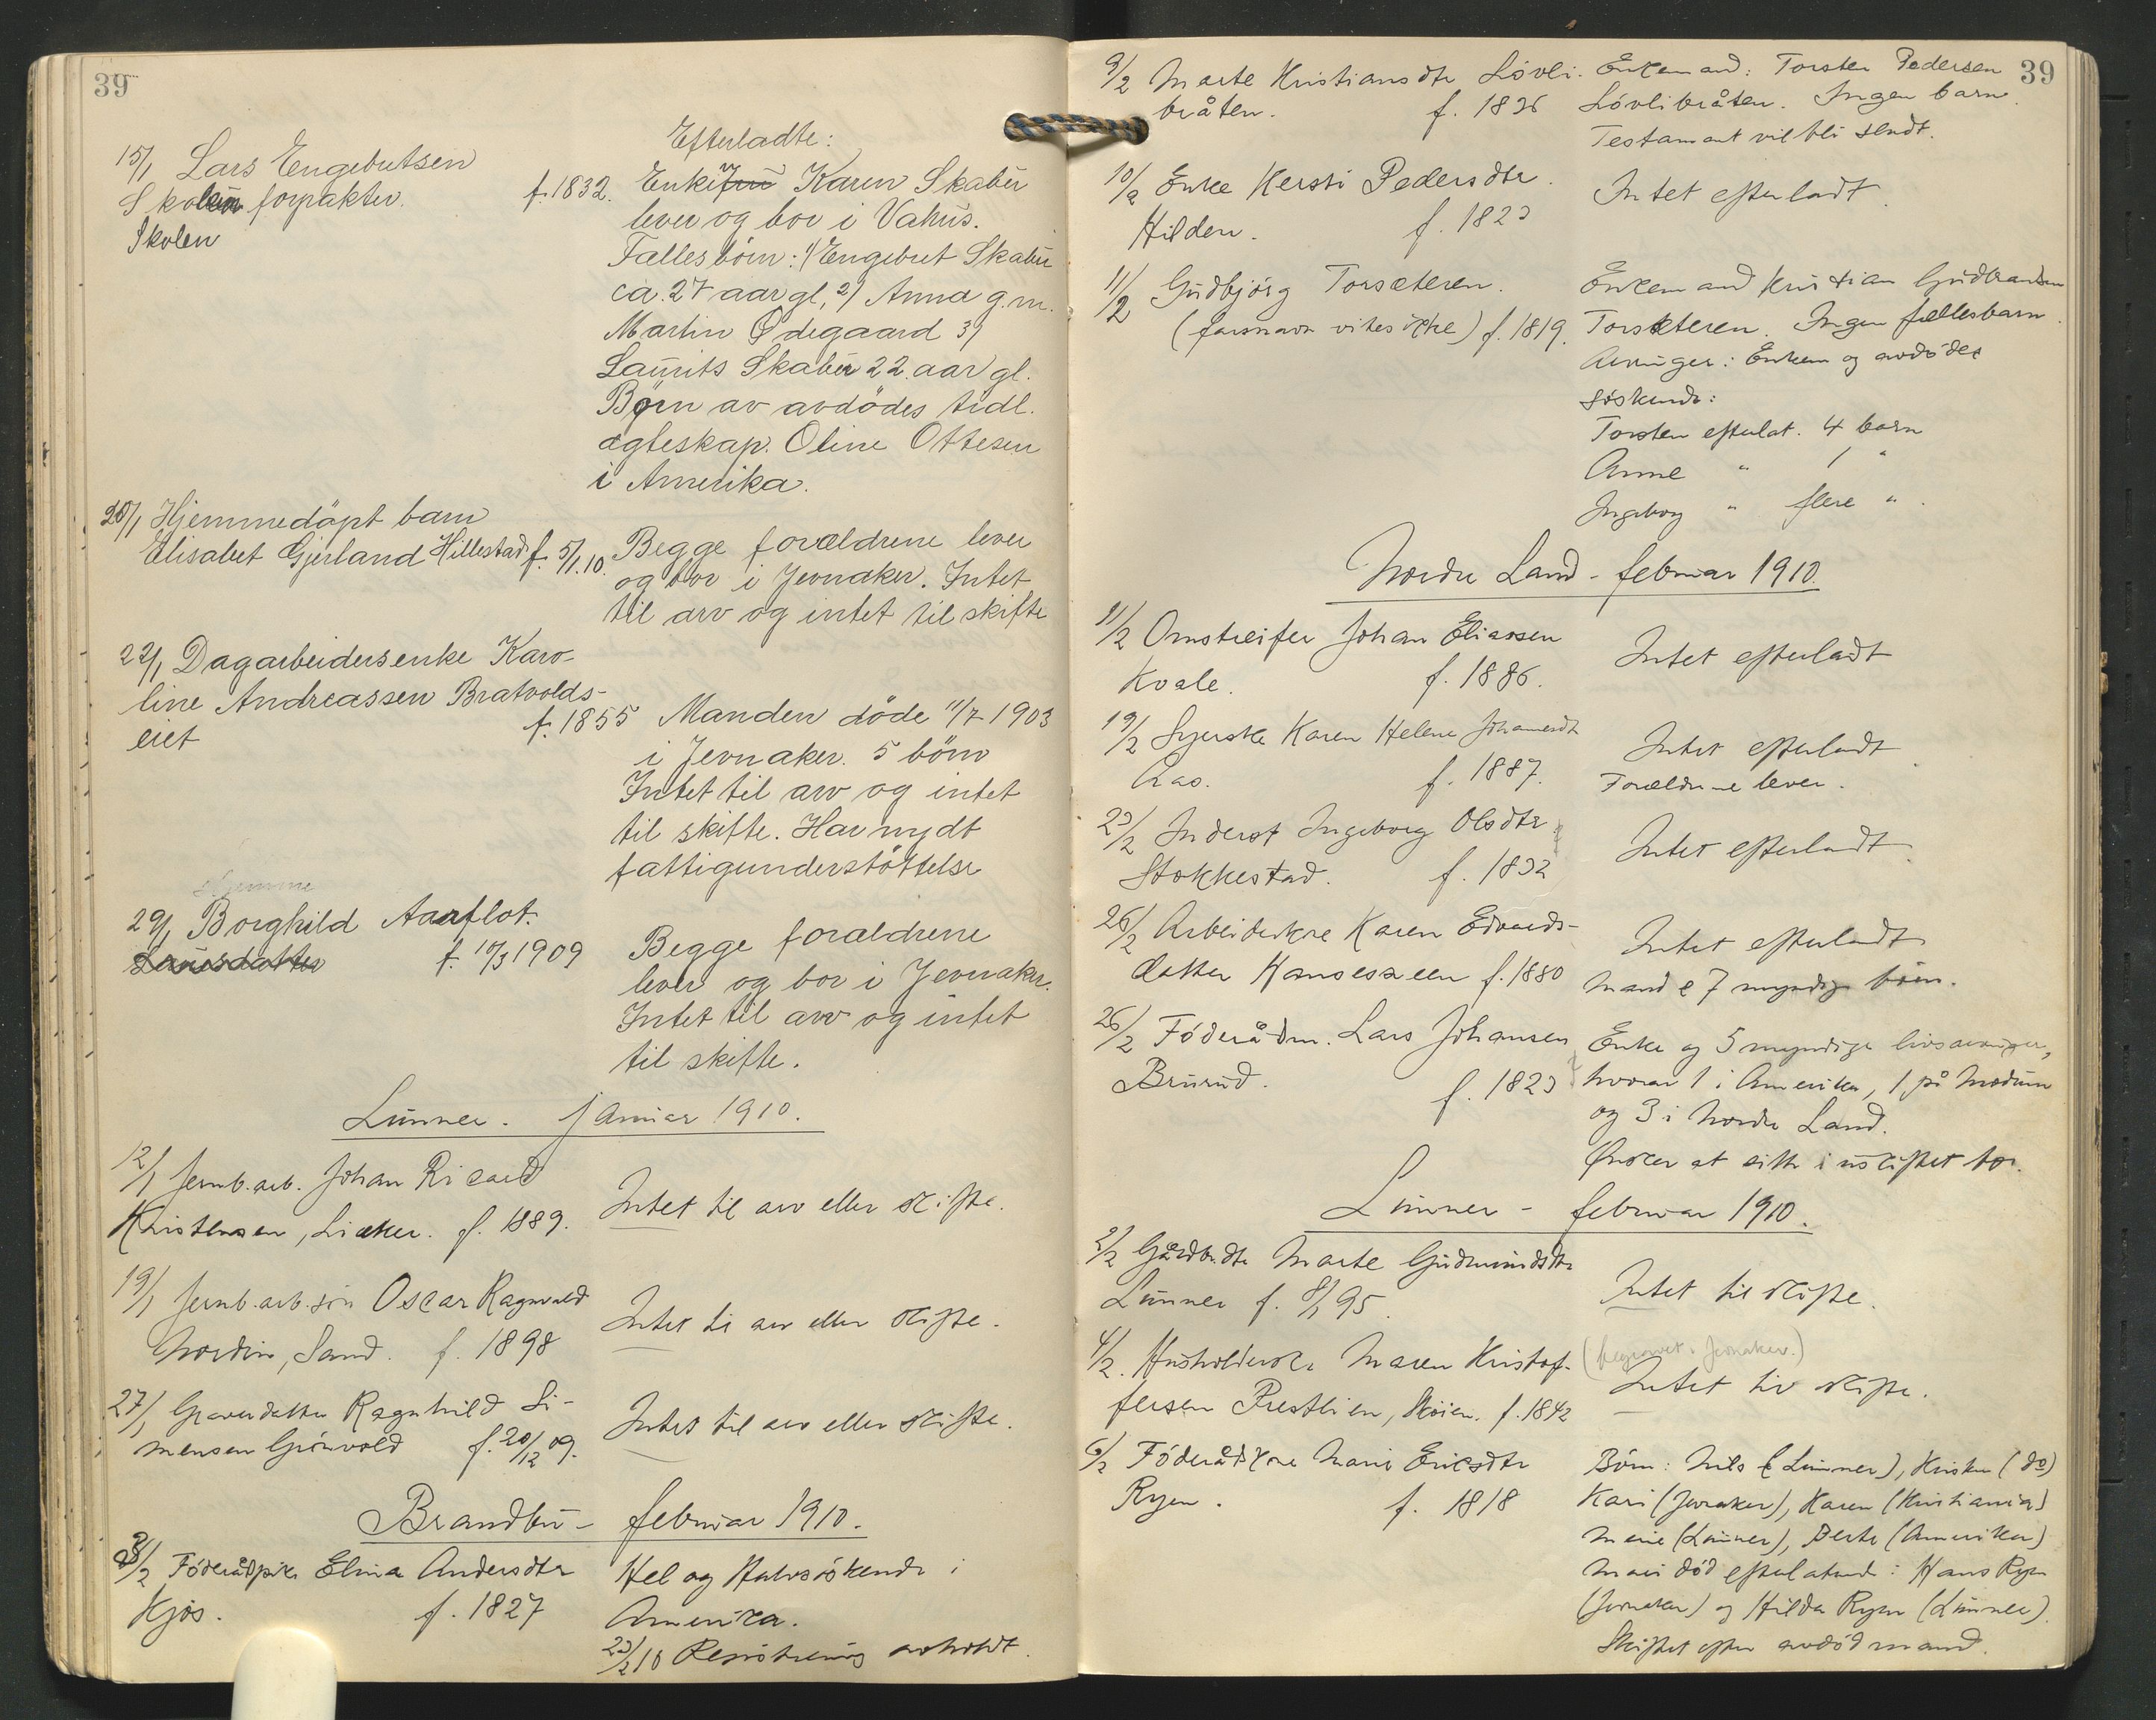 39
Efterladte:
15/1 Lars Engebretsen
Skolen forpakter. f. 1832.
Skolen
Enke Fru Karen Skabu
lever og bor i Vahus.
Fælles börn: 1/ Engebret Skabu
ca. 27 aar gl, 2/ Anna g.m.
Martin Ødegaard 3/
Laurits Skabu 22 aar gl.
Børn av avdödes tidl.
ægteskap. Oline Ottesen
i Amerika.
20/1 Hjemmedöpt barn
Elisabet Gjerland Hillestad f. 5/1.10.
Begge forældrene lever
og bor i Jevnaker. Intet
til arv og intet til skifte
22/1 Dagarbeidersenke Karo-
line Andreassen Bratvolds-
eiet f. 1855
Manden döde 11/7 1903
i Jevnaker. 5 börn
Intet til arv og intet
til skifte. Har nydt
fattigunderstöttelse
Hjemme
29/1 Borghild Aarflot.
Larsdatter f. 10/3 1909
Begge forældrene
lever og bor i Jevnaker.
Intet til arv og intet
til skifte.
Lunner. januar 1910.
12/1 Jernb.arb. Johan Ricard
Kristensen, Liaker. f. 1889.
Intet til arv eller skifte.
19/1 Jernb.arb. sön Oscar Ragnvald
Nordin, Sand. f. 1898
Intet til arv eller skifte.
27/1 Graverdatter Ragnhild Si-
mensen Grönvold f. 20/12 09.
Intet til arv eller skifte.
Brandbu - februar 1910.
3/2 Föderådspike Elina Andersdtr
Kjos. f. 1827
Hel og Halvsöskende i
Amerika.
23/2 10 Registrering avholdt.
39
9/2 Marte Kristiansdtr Lövli-
bråten. f. 1826
Enkemand: Torsten Pedersen
Lövlibråten. Ingen barn.
Testament vil bli sendt.
10/2 Enke Kersti Pedersdtr.
Hilden. f. 1823
Intet efterladt.
11/2 Gudbjörg Torsæteren.
(farsnavn vites ikke) f. 1819.
Enkemand Kristian Gudbrandsen
Torsæteren. Ingen fællesbarn.
Arvinger: Enkem og avdödes
söskende:
Torsten efterlat. 4 barn
Anne " 1 "
Ingeborg " flere ".
Nordre Land - februar 1910.
11/2 Omstreifer Johan Eliassen
Kvale. f. 1886.
Intet efterladt
19/2 Syerske Karen Helene Johannesdt
Aas. f. 1887.
Intet efterladt
Forældrene lever.
23/2 Inderst Ingeborg Olsdtr.
Stokkestad. f. 1832
Intet efterladt.
26/2 Arbeiderkone Karen Edvards-
datter Hanseseen f. 1880
Intet efterladt
Mand & 7 myndige börn.
26/2 Föderådm. Lars Johansen
Brurud. f. 1823
Enke og 5 myndige livsarvinger,
hvorav 1 i Amerika, 1 på Modum
og 3 i Nordre Land.
Ønsker at sitte i uskiftet bo.
Lunner - februar 1910.
2/2 Gårdbr.dtr Marte Gudmundsdtr
Lunner f. 8/1 95.
Intet til skifte.
4/2. Husholderske Maren Kristof-
fersen Prestlien, Sköien. f. 1842
(begravet i Jevnaker.)
Intet til skifte.
6/2 Föderådskone Marie Ericsdtr
Ryen. f. 1818
Börn: Nils (Lunner), Kristen (do)
Kari (Jevnaker), Karen (Kristiania)
Marie (Lunner), Berte (Amerika)
Mari död efterlatende: Hans Ryen
(Jevnaker) og Hilda Ryen (Lunner).
Skiftet efter avdöd mand.